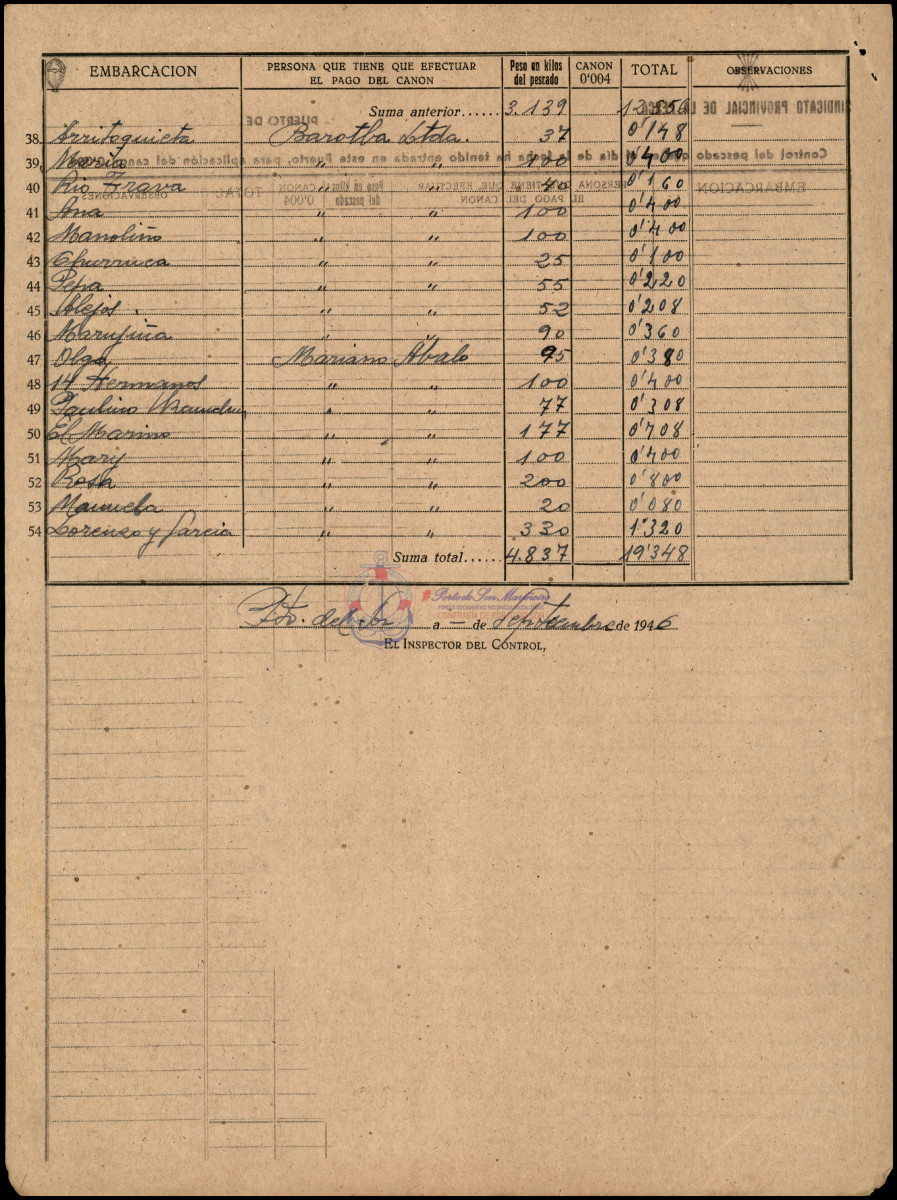 EMBARCACION PERSONA QUE TIENE QUE EFECTUAR EL PAGO DEL CANON Peso en kilos del pescado CANON 0'004 TOTAL OBSERVACIONES
Suma anterior...... 3.139 12.556
38 Arritoquieta Barotba Ltda. 37 0'148
39 Maria " " 100 0'400
40 Rio Trava " " 40 0'160
41 Ana " " 100 0'400
42 Manoliño " " 100 0'400
43 Churruca " " 25 0'100
44 Pepa " " 55 0'220
45 Alejos " " 52 0'208
46 Marusiña " " 90 0'360
47 Olga Mariano Abalo 95 0'380
48 14 Hermanos " " 100 0'400
49 Paulino " " 77 0'308
50 El Marino " " 177 0'708
51 Mary " " 100 0'400
52 Rosa " " 200 0'800
53 Manuela " " 20 0'080
54 Lorenzo y Garcia " " 330 1'320
Suma total...... 4.837 19'348
Porto do Son Marinero
COFRADÍA DE PORTO DO SON
Pto. del Son a — de Septiembre de 1946
EL INSPECTOR DEL CONTROL,